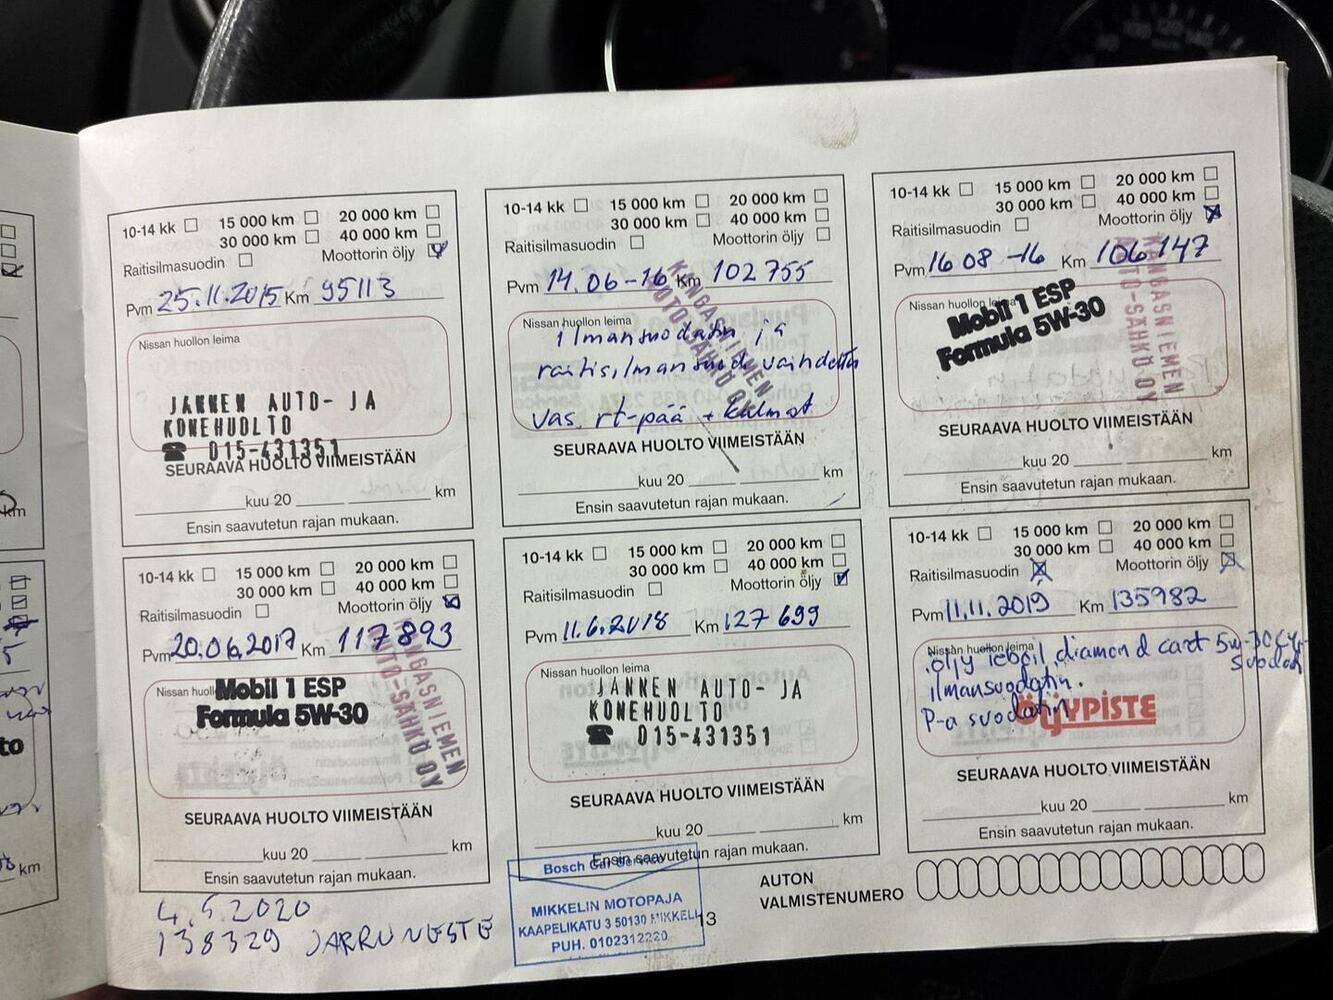 10-14 kk 15 000 km 20 000 km
30 000 km 40 000 km
Raitisilmasuodin Moottorin öljy
Pvm 25.11.2015 Km 95113
Nissan huollon leima
JANNEN AUTO- JA
KONEHUOLTO
☎ 015-431351
SEURAAVA HUOLTO VIIMEISTÄÄN
kuu 20 km
Ensin saavutetun rajan mukaan.
10-14 kk 15 000 km 20 000 km
30 000 km 40 000 km
Raitisilmasuodin Moottorin öljy
Pvm 14.06-16 Km 102 755
KANGASNIEMEN
AUTO-SÄHKÖ OY
Nissan huollon leima
ilmansuodatin ja
raitisilmansuod. vaihdettu
vas. rt-pää + kulmat
SEURAAVA HUOLTO VIIMEISTÄÄN
kuu 20 km
Ensin saavutetun rajan mukaan.
10-14 kk 15 000 km 20 000 km
30 000 km 40 000 km
Raitisilmasuodin Moottorin öljy
Pvm 16 08 -16 Km 106 147
KANGASNIEMEN
AUTO-SÄHKÖ OY
Nissan huollon leima
Mobil 1 ESP
Formula 5W-30
SEURAAVA HUOLTO VIIMEISTÄÄN
kuu 20 km
Ensin saavutetun rajan mukaan.
10-14 kk 15 000 km 20 000 km
30 000 km 40 000 km
Raitisilmasuodin Moottorin öljy
Pvm 20.06.2017 Km 117893
KANGASNIEMEN
AUTO-SÄHKÖ OY
Nissan huol
Mobil 1 ESP
Formula 5W-30
SEURAAVA HUOLTO VIIMEISTÄÄN
kuu 20 km
Ensin saavutetun rajan mukaan.
10-14 kk 15 000 km 20 000 km
30 000 km 40 000 km
Raitisilmasuodin Moottorin öljy
Pvm 11.6.2018 Km 127 699
Nissan huollon leima
JANNEN AUTO- JA
KONEHUOLTO
☎ 015-431351
SEURAAVA HUOLTO VIIMEISTÄÄN
kuu 20 km
Ensin saavutetun rajan mukaan.
10-14 kk 15 000 km 20 000 km
30 000 km 40 000 km
Raitisilmasuodin Moottorin öljy
Pvm 11.11.2019 Km 135982
Nissan huollon leima
öljy diamond 5w-30
suodatin
ilmansuodatin.
P-a suodatin
ÖljYPISTE
SEURAAVA HUOLTO VIIMEISTÄÄN
kuu 20 km
Ensin saavutetun rajan mukaan.
4.5.2020
138329 JARRUNESTE
Bosch Car Service
MIKKELIN MOTOPAJA
KAAPELIKATU 3 50130 MIKKELI
PUH. 0102312220
13
AUTON
VALMISTENUMERO
km
km